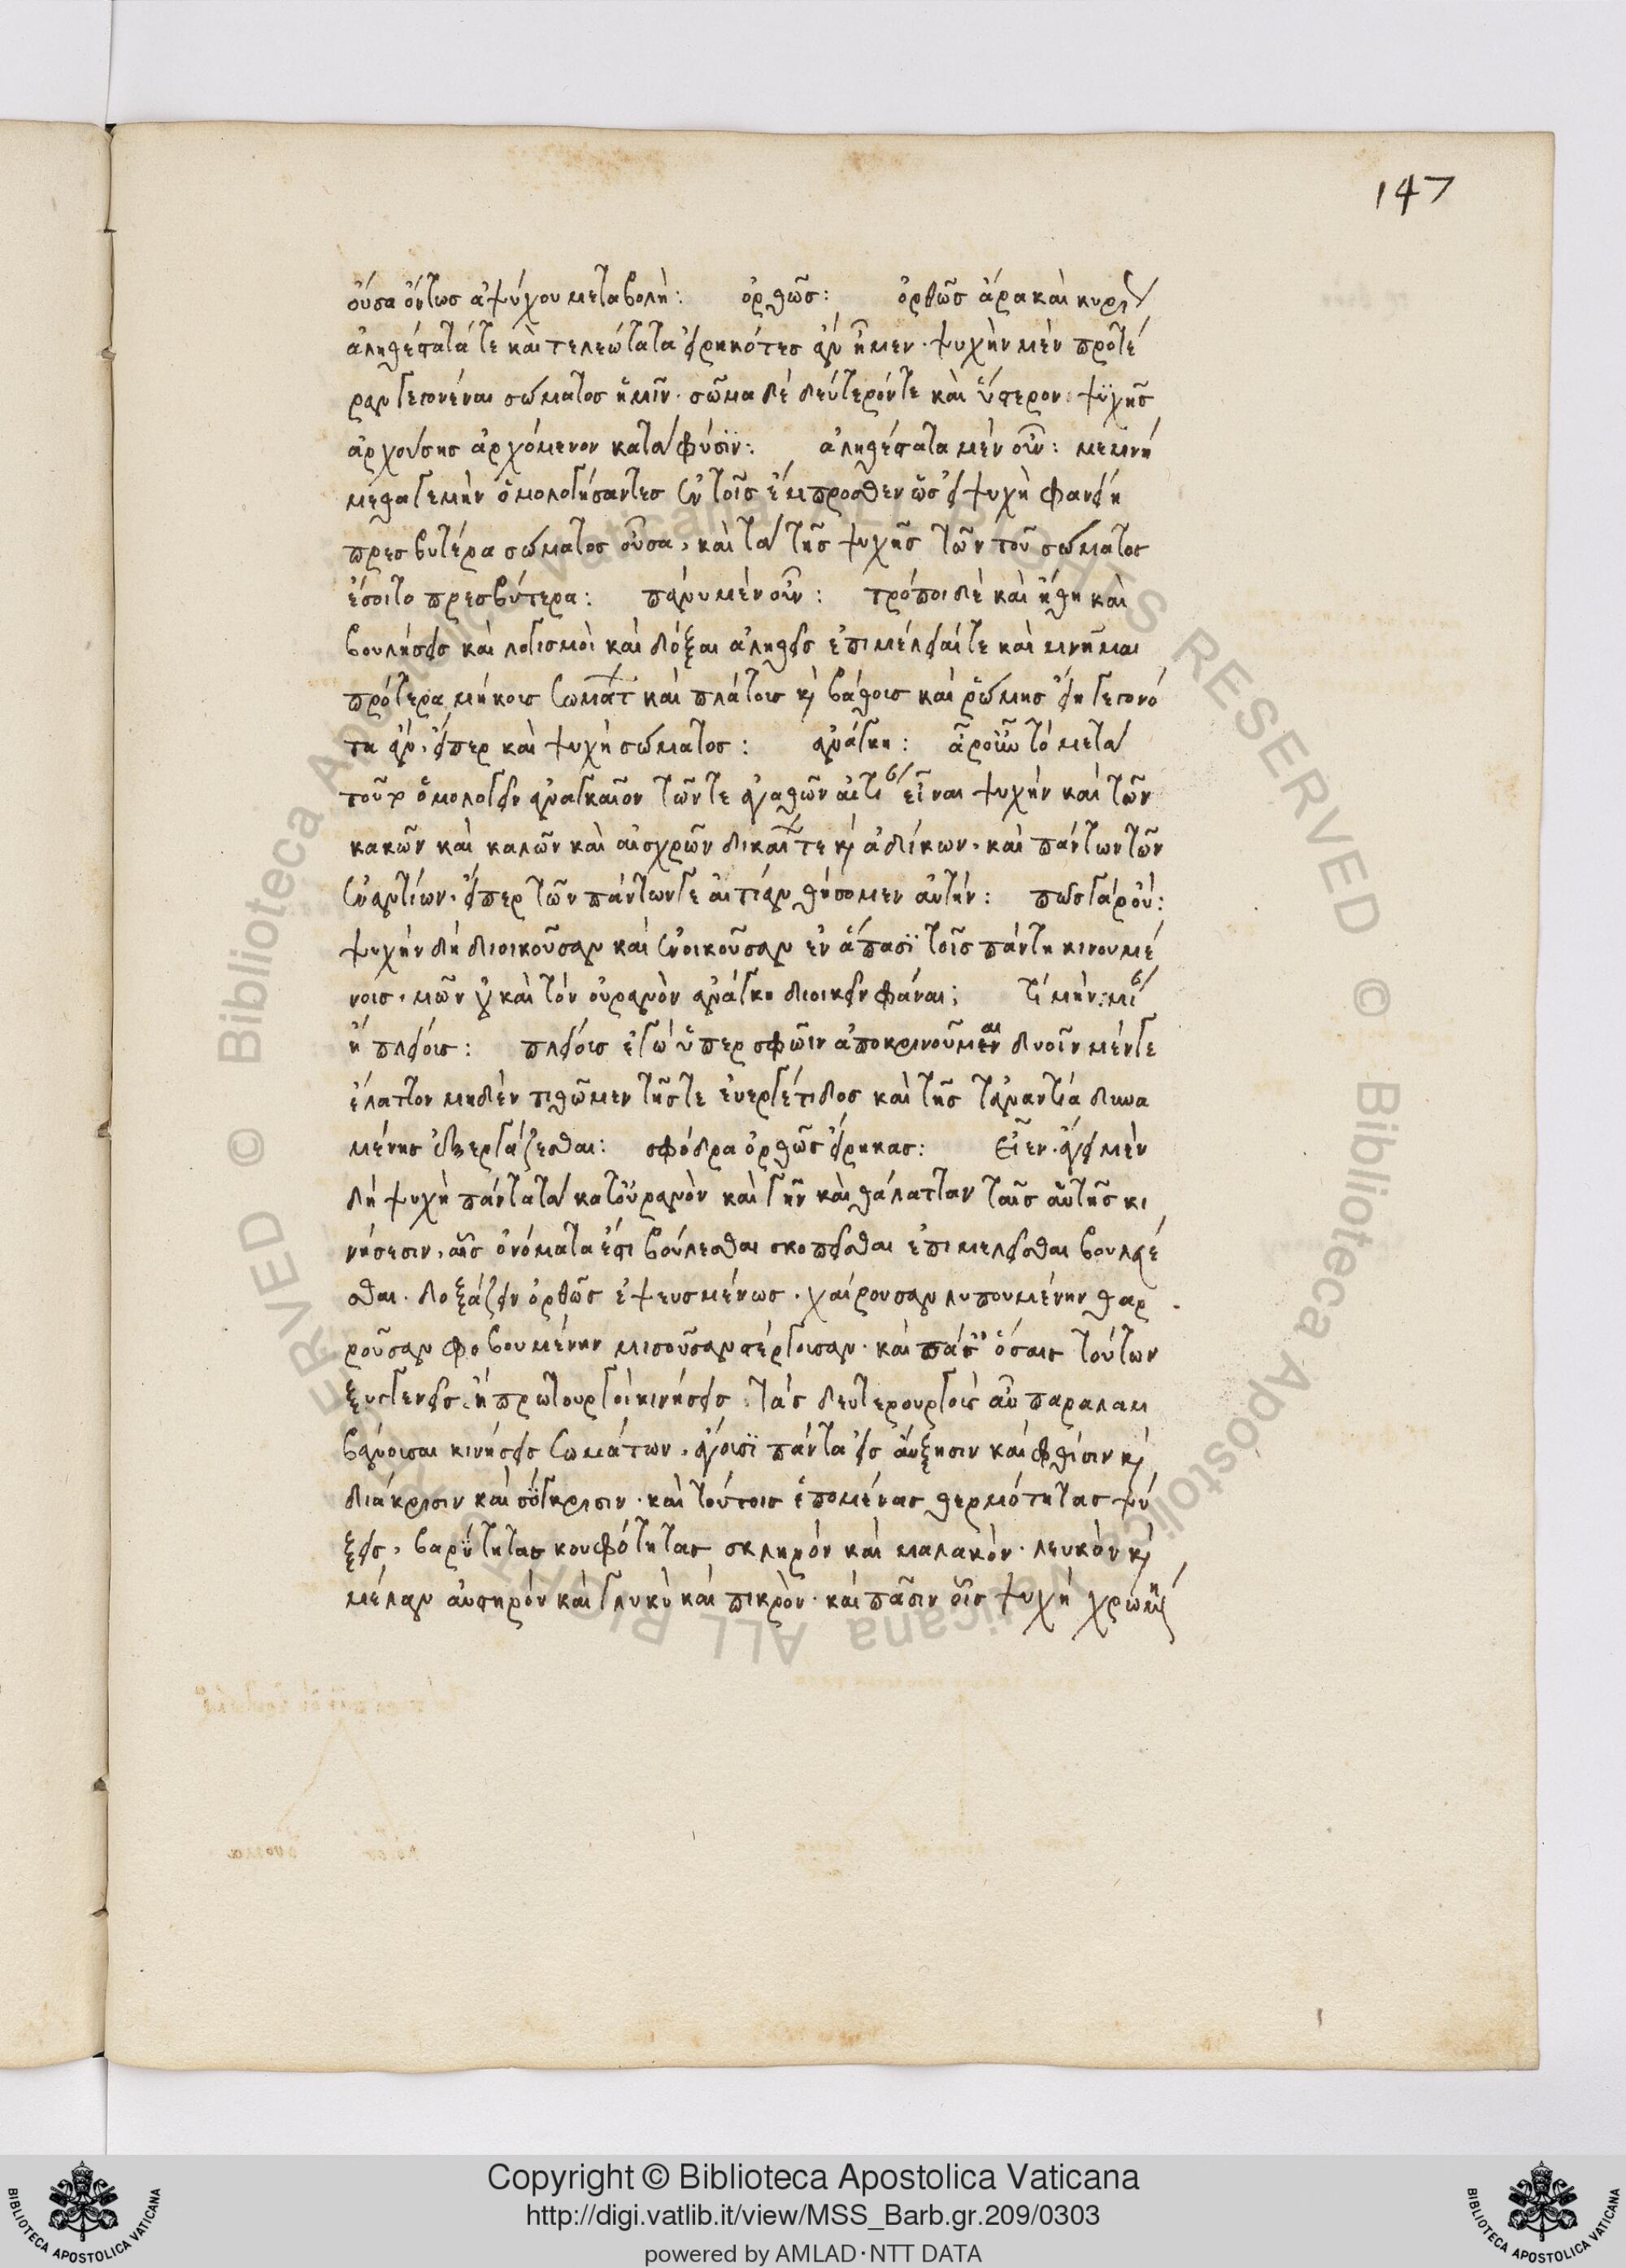 147
οὖσα ὄντως ἀψύχου μεταβολὴ: ὀρθῶς: ὀρθῶς ἄρα καὶ κυρί
ἀληθέστατά τε καὶ τελεώτατα εἰρηκότες ἂν ἦμεν· ψυχὴν μὲν προτέ
ραν γεγονέναι σώματος ἡμῖν· σῶμα δὲ δεύτερόν τε καὶ ὕστερον· ψϋχῆς
ἀρχούσης ἀρχόμενον κατὰ φύσϊν: ἀληθέστατα μὲν οὖν: μεμνή
μεθα γε μὴν ὁμολογήσαντες ἐν τοῖς ἔμπροσθεν ὡς εἰ ψυχὴ φανείη
πρεσβυτέρα σώματος οὖσα, καὶ τὰ τῆς ψυχῆς τῶν τοῦ σώματος
ἔσοιτο πρεσβύτερα: πάνυ μὲν οὖν: τρόποι δὲ καὶ ἤθη καὶ
βουλήσεις καὶ λογισμοὶ καὶ δόξαι ἀληθεῖς ἐπιμέλειαί τε καὶ μνῆμαι
πρότερα μήκους σωμάτ καὶ πλάτους κ βάθους καὶ ῥώμης εἴη γεγονό
τα ἄν, εἴπερ καὶ ψυχὴ σώματος: ἀνάγκη: ἆρ οὖν τὸ μετὰ
τοῦτο ὁμολογεῖν ἀναγκαῖον τῶν τε ἀγαθῶν αἰτί εἶναι ψυχὴν καὶ τῶν
κακῶν καὶ καλῶν καὶ αἰσχρῶν δικαί τε κ ἀδίκων, καὶ πάντων τῶν
ἐναντίων, εἴπερ τῶν πάντων γε αἰτίαν θήσομεν αὐτήν: πῶς γὰρ οὔ:
ψυχὴν δὴ διοικοῦσαν καὶ ἐνοικοῦσαν ἐν ἅπασϊ τοῖς πάντη κινουμέ
νοις, μῶν οὐ καὶ τὸν οὐρανὸν ἀνάγκη διοικεῖν φάναι; τί μὴν: μί
ἢ πλείους: πλείους ἐγὼ ὑπὲρ σφῶιν ἀποκρινοῦμεν αι δυοῖν μέν γε
ἔλαττον μηδὲν τιθῶμεν τῆς τε εὐεργέτιδος καὶ τῆς τἀναντία δυνα
μένης ἐξεργάζεσθαι: σφόδρα ὀρθῶς εἴρηκας: Εἶεν· ἄγει μὲν
δὴ ψυχὴ πάντα τὰ κατ οὐρανὸν καὶ γῆν καὶ θάλατταν ταῖς αὑτῆς κι
νήσεσιν, αἷς ὀνόματα ἐστι βούλεσθαι σκοπεῖσθαι ἐπιμελεῖσθαι βουλεύε
σθαι· δοξάζειν ὀρθῶς ἐψευσμένως· χαίρουσαν λυπουμένην θαρ
ροῦσαν φοβουμένην μισοῦσαν στέργουσαν· καὶ πάσ ὅσαις τούτων
ξυγγενεῖς, ἢ πρωτουργοὶ κινήσεις, τὰς δευτερουργοὺς αὖ παραλαμ
βάνουσαι κινήσεις σωμάτων, ἄγουσϊ πάντα εἰς αὔξησιν καὶ φθίσιν κ
διάκρισιν καὶ σύγκρισιν· καὶ τούτοις ἑπομένας θερμότητας ψύ
ξεις, βαρΰτητας κουφότητας σκληρὸν καὶ μαλακὸν· λευκὸν κ
μέλαν αὐστηρὸν καὶ γλυκὺ καὶ πικρὸν· καὶ πᾶσιν οἷς ψυχὴ χρωμ
Copyright © Biblioteca Apostolica Vaticana
http://digi.vatlib.it/view/MSS_Barb.gr.209/0303
powered by AMLAD·NTT DATA
BIBLIOTECA APOSTOLICA VATICANA
BIBLIOTECA APOSTOLICA VATICANA
© Biblioteca Apostolica Vaticana ALL RIGHTS RESERVED © Biblioteca Apostolica Vaticana ALL RIGHTS RESERVED